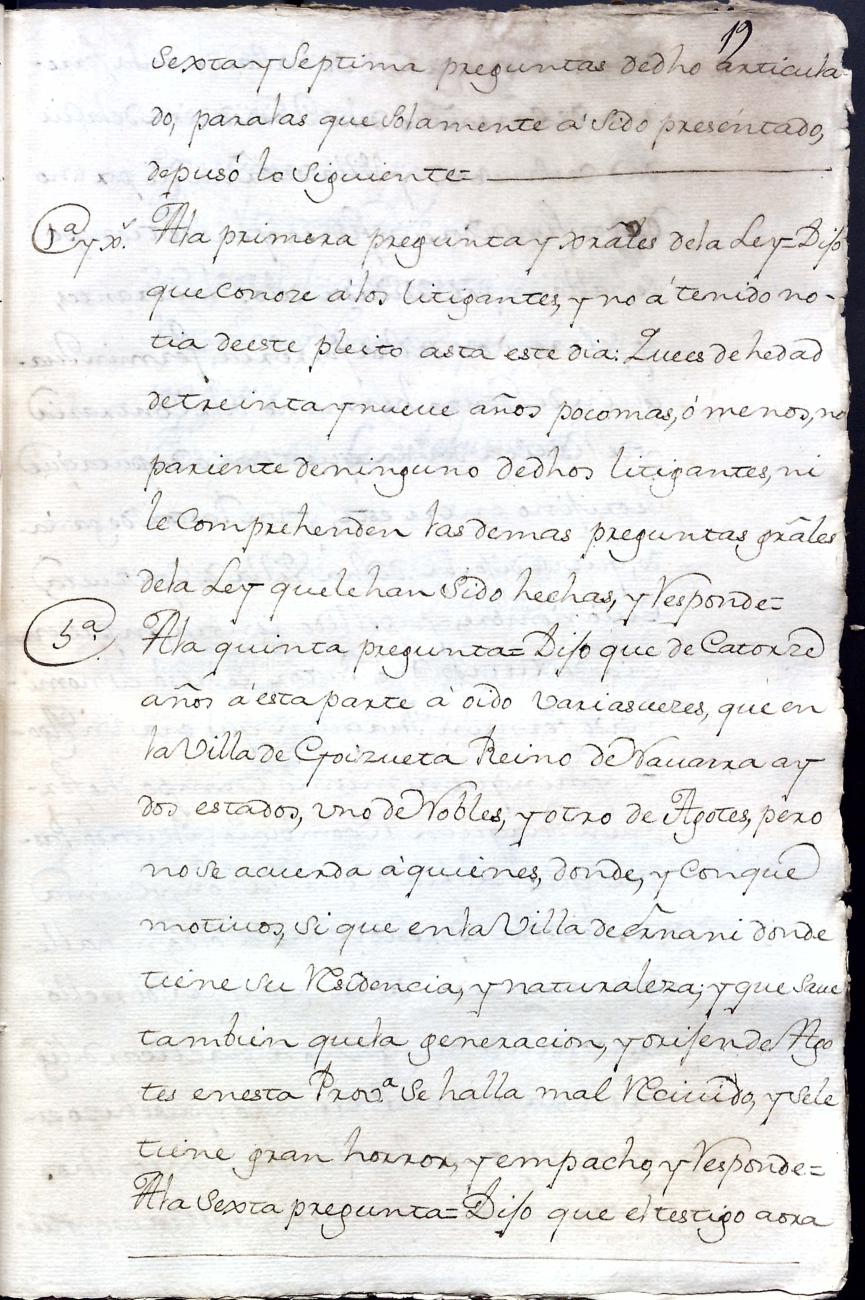 19
Sexta y Septima preguntas de dho articula-
do, para las que Solamente á Sido presentado,
depusó lo Siguiente=
1ª y xs. A la primera pregunta y xrãles de la Ley= Dijo
que Conoze á los litigantes, y no á tenido no-
tia de este pleito asta este dia: Que es de hedad
de treinta y nueve años poco mas, ó menos, no
pariente de ninguno de dhos litigantes, ni
le Comprehenden las demas preguntas grãles
de la Ley que le han Sido hechas, y Responde=
5ª. A la quinta pregunta= Dijo que de Catorze
años á esta parte á oido varias vezes, que en
la Villa de Goizueta Reino de Navarra ay
dos estados, uno de Nobles, y otro de Agotes, pero
no se acuerda á quienes, donde, y Con que
motivos, si que en la Villa de Ernani donde
tiene su Residencia, y naturaleza; y que save
tambien que la generacion, y orijen de Ago
tes en esta Provª Se halla mal Recivido, y se le
tiene gran horror, y empacho, y Responde=
A la Sexta pregunta= Dijo que el testigo aora